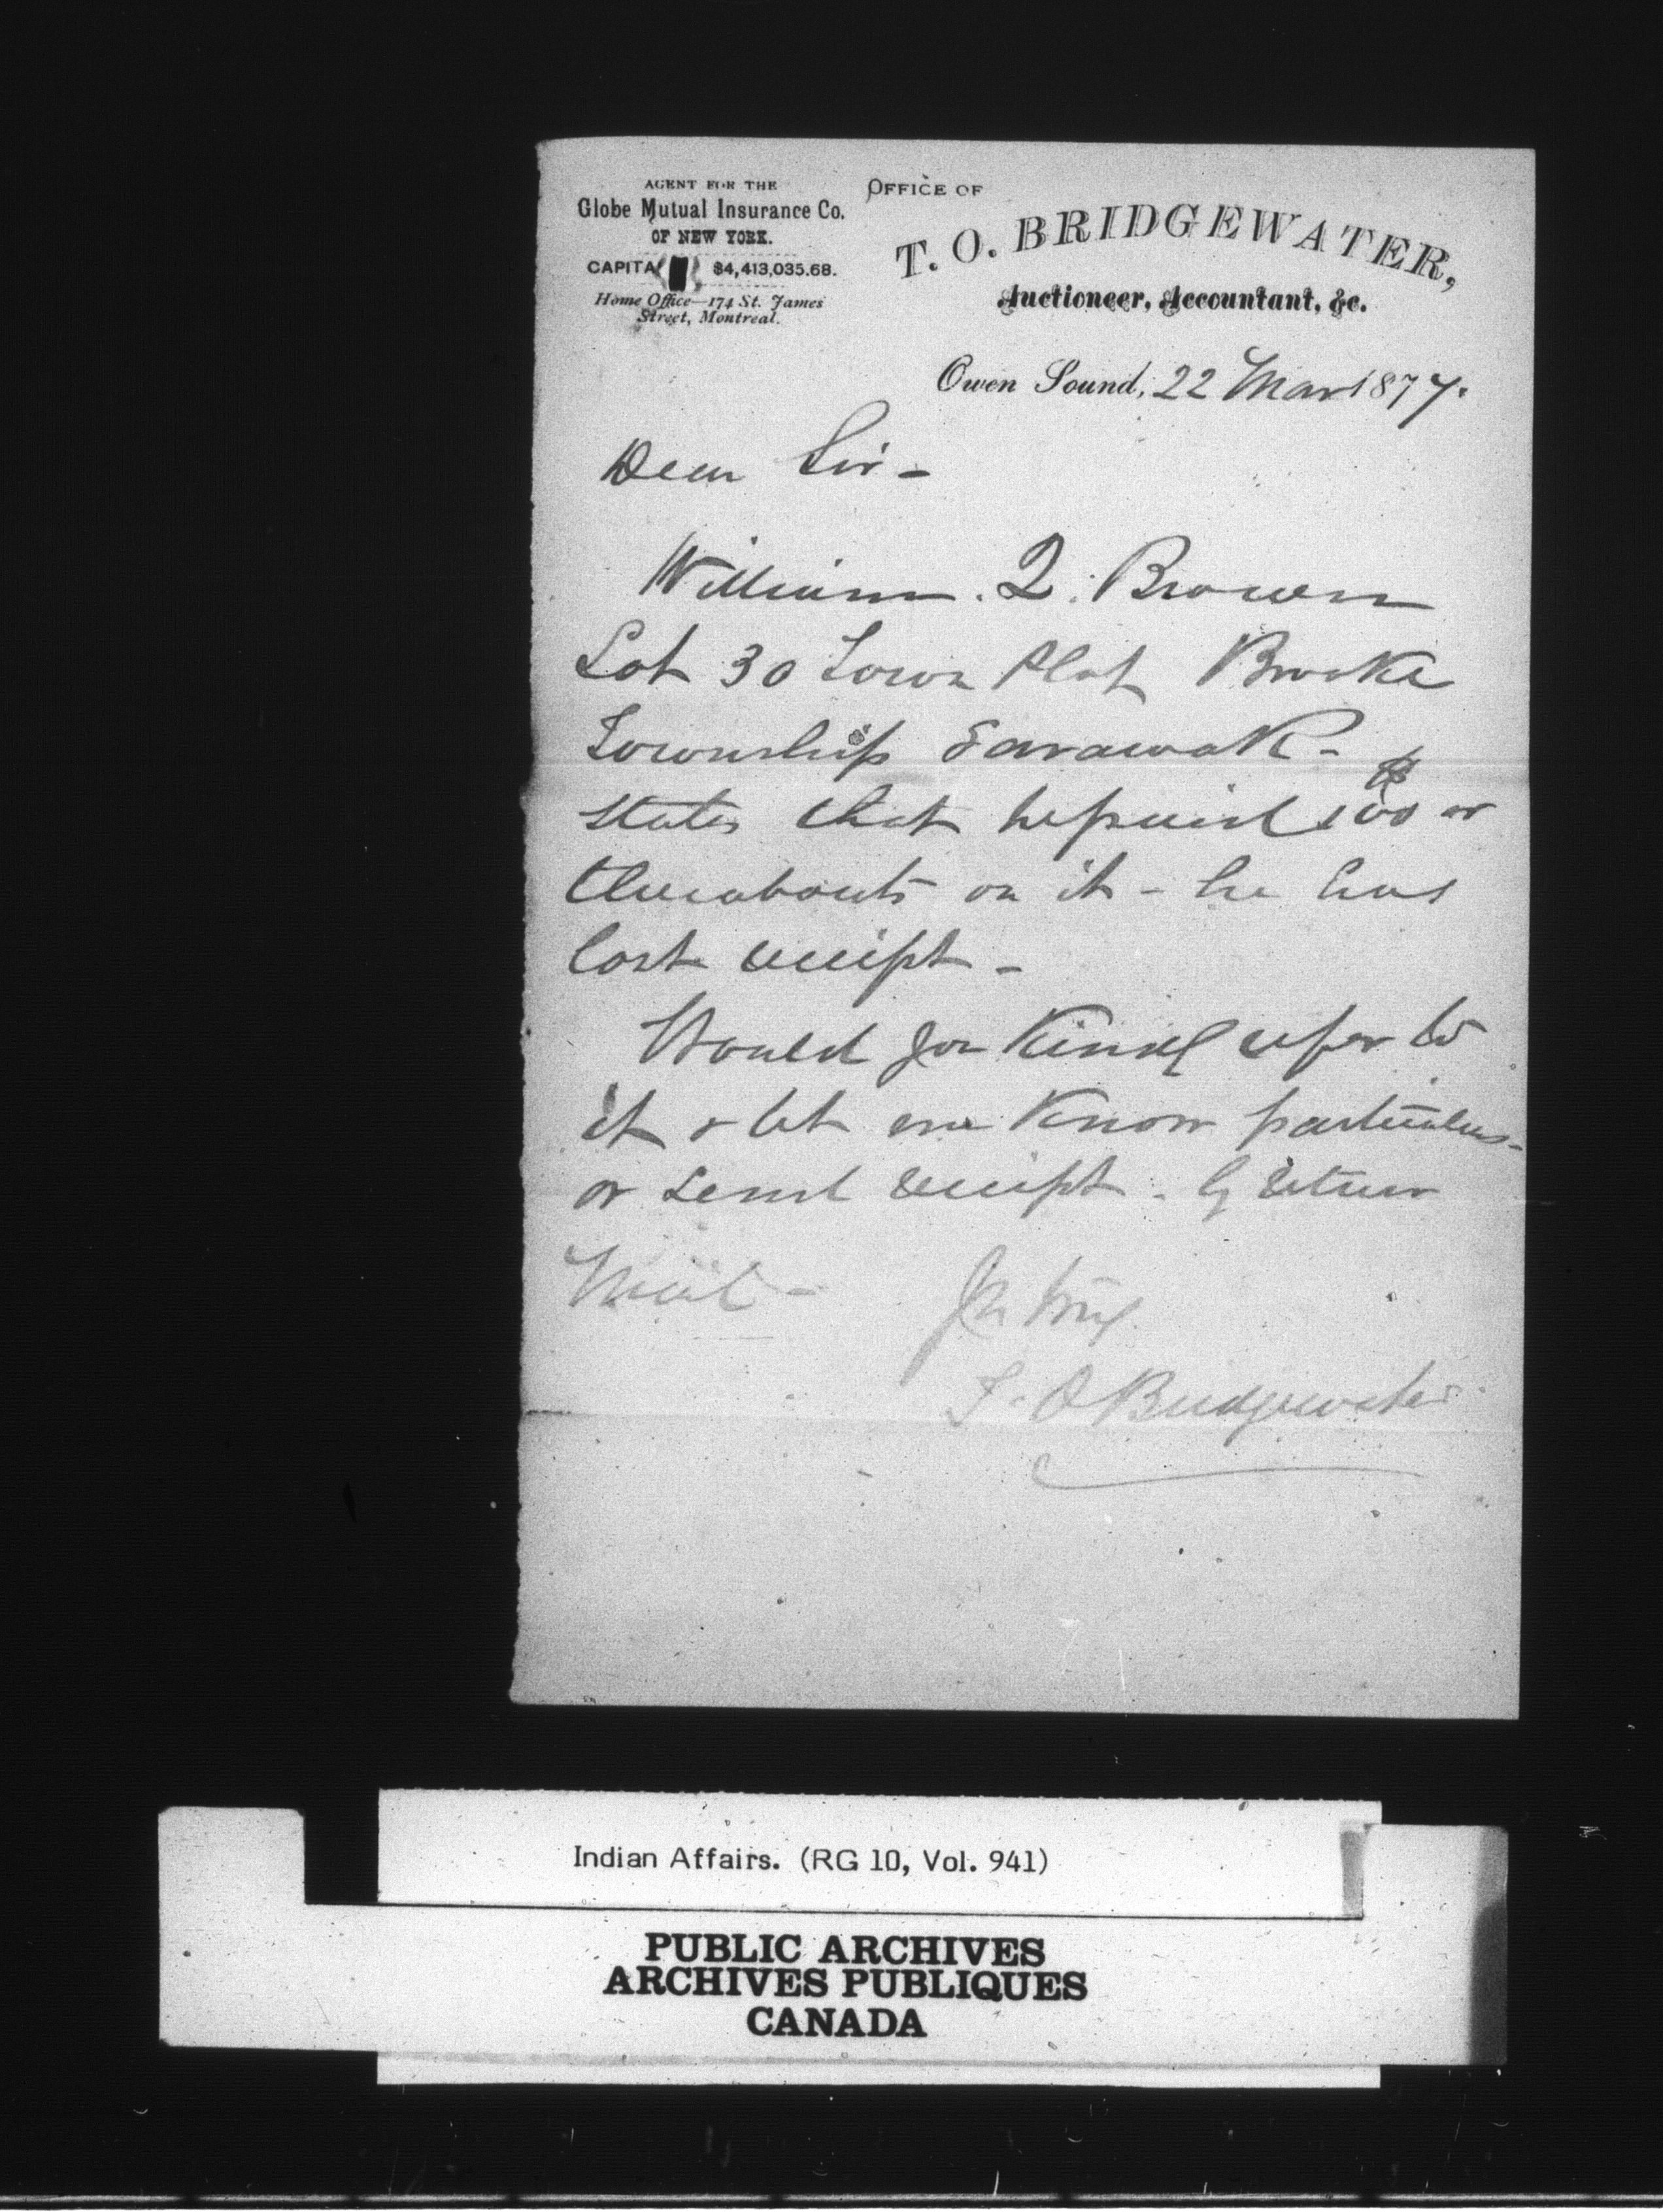 AGENT FOR THE
Globe Mutual Insurance Co.
OF NEW YORK.
CAPITA $4,413,035.68.
Home Office—174 St. James
Street, Montreal.
OFFICE OF
T. O. BRIDGEWATER,
Auctioneer, Accountant, &c.
Owen Sound, 22 Mar 1877.
Dear Sir -
William. Q. Brown
Lot 30 Town Plot Brooke
Township Sarawak -
States that he paid $100 or
thereabouts on it - he has
lost receipt -
Would you kindly refer to
it & let me know particulars -
or send receipt. by return
Mail -
Yrs truly
T. O Bridgewater
Indian Affairs. (RG 10, Vol. 941)
PUBLIC ARCHIVES
ARCHIVES PUBLIQUES
CANADA